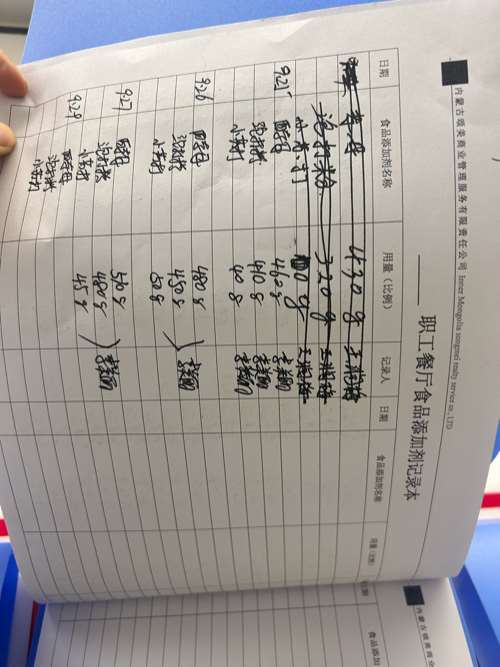 内蒙古颂美商业管理服务有限责任公司 Inner Mongolia songmei realty service co., LTD
职工餐厅食品添加剂记录本
日期 食品添加剂名称 用量（比例） 记录人 日期 食品添加剂名称 用量（比例）
酵母 430g
泡打粉 320g
小苏打
9.25 酵母 460g
泡打粉 410g
小苏打 40g
9.26 酵母 480g
泡打粉 450g
小苏打 50g
9.27 酵母 500g
泡打粉 480g
小苏打 45g
9.28 酵母
泡打粉
小苏打
内蒙古颂美商业
食品添加